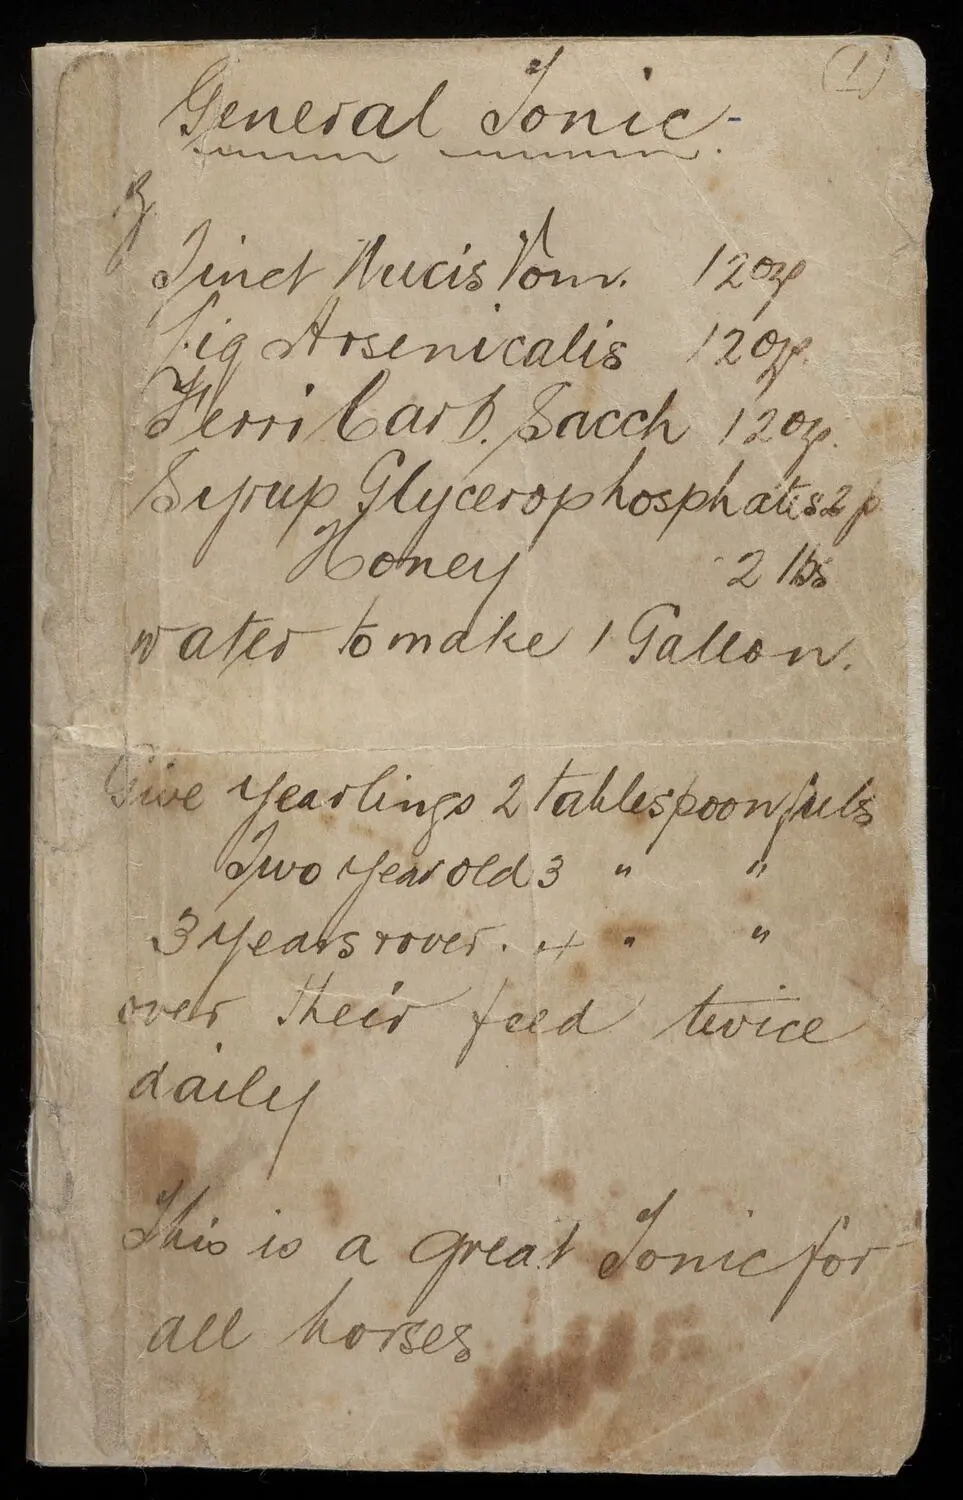 (1)
General Tonic -
Tinct Nucis Vom. 12 oz
Liq Arsenicalis 12 oz.
Ferri Carb. Sacch 12 oz.
Syrup Glycerophosphatis 2 p
Honey 2 lbs
water to make 1 Gallon.
Give Yearlings 2 tablespoonfuls
Two Year old 3 " "
3 Years & over. 4 " "
over their feed twice
daily
This is a great Tonic for
all horses